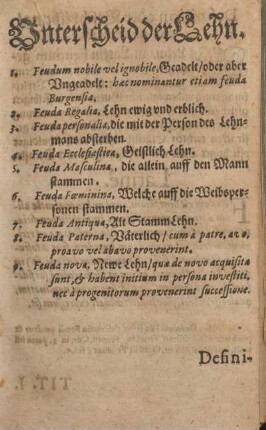 Vnterscheid der Lehn.
1. Feudum nobile vel ignobile, Geadelt/ oder aber
Vngeadelt: hæc nominantur etiam feuda
Burgensia.
2. Feuda Regalia, Lehn ewig vnd erblich.
3. Feuda personalia, die mit der Person des Lehn-
mans absterben.
4. Feuda Ecclesiastica, Geistlich Lehn.
5. Feuda Masculina, die allein auff den Mann
stammen.
6. Feuda Fœminina, Welche auff die Weibsper-
sonen stammen.
7. Feuda Antiqua, Alt Stamm Lehn.
8. Feuda Paterna, Väterlich/ cum à patre, avo,
proavo vel abavo provenerint.
9. Feuda nova, Newe Lehn/ quæ de novo acquisita
sunt, & habent initium in persona investiti,
nec à progenitorum provenerint successione.
Defini-